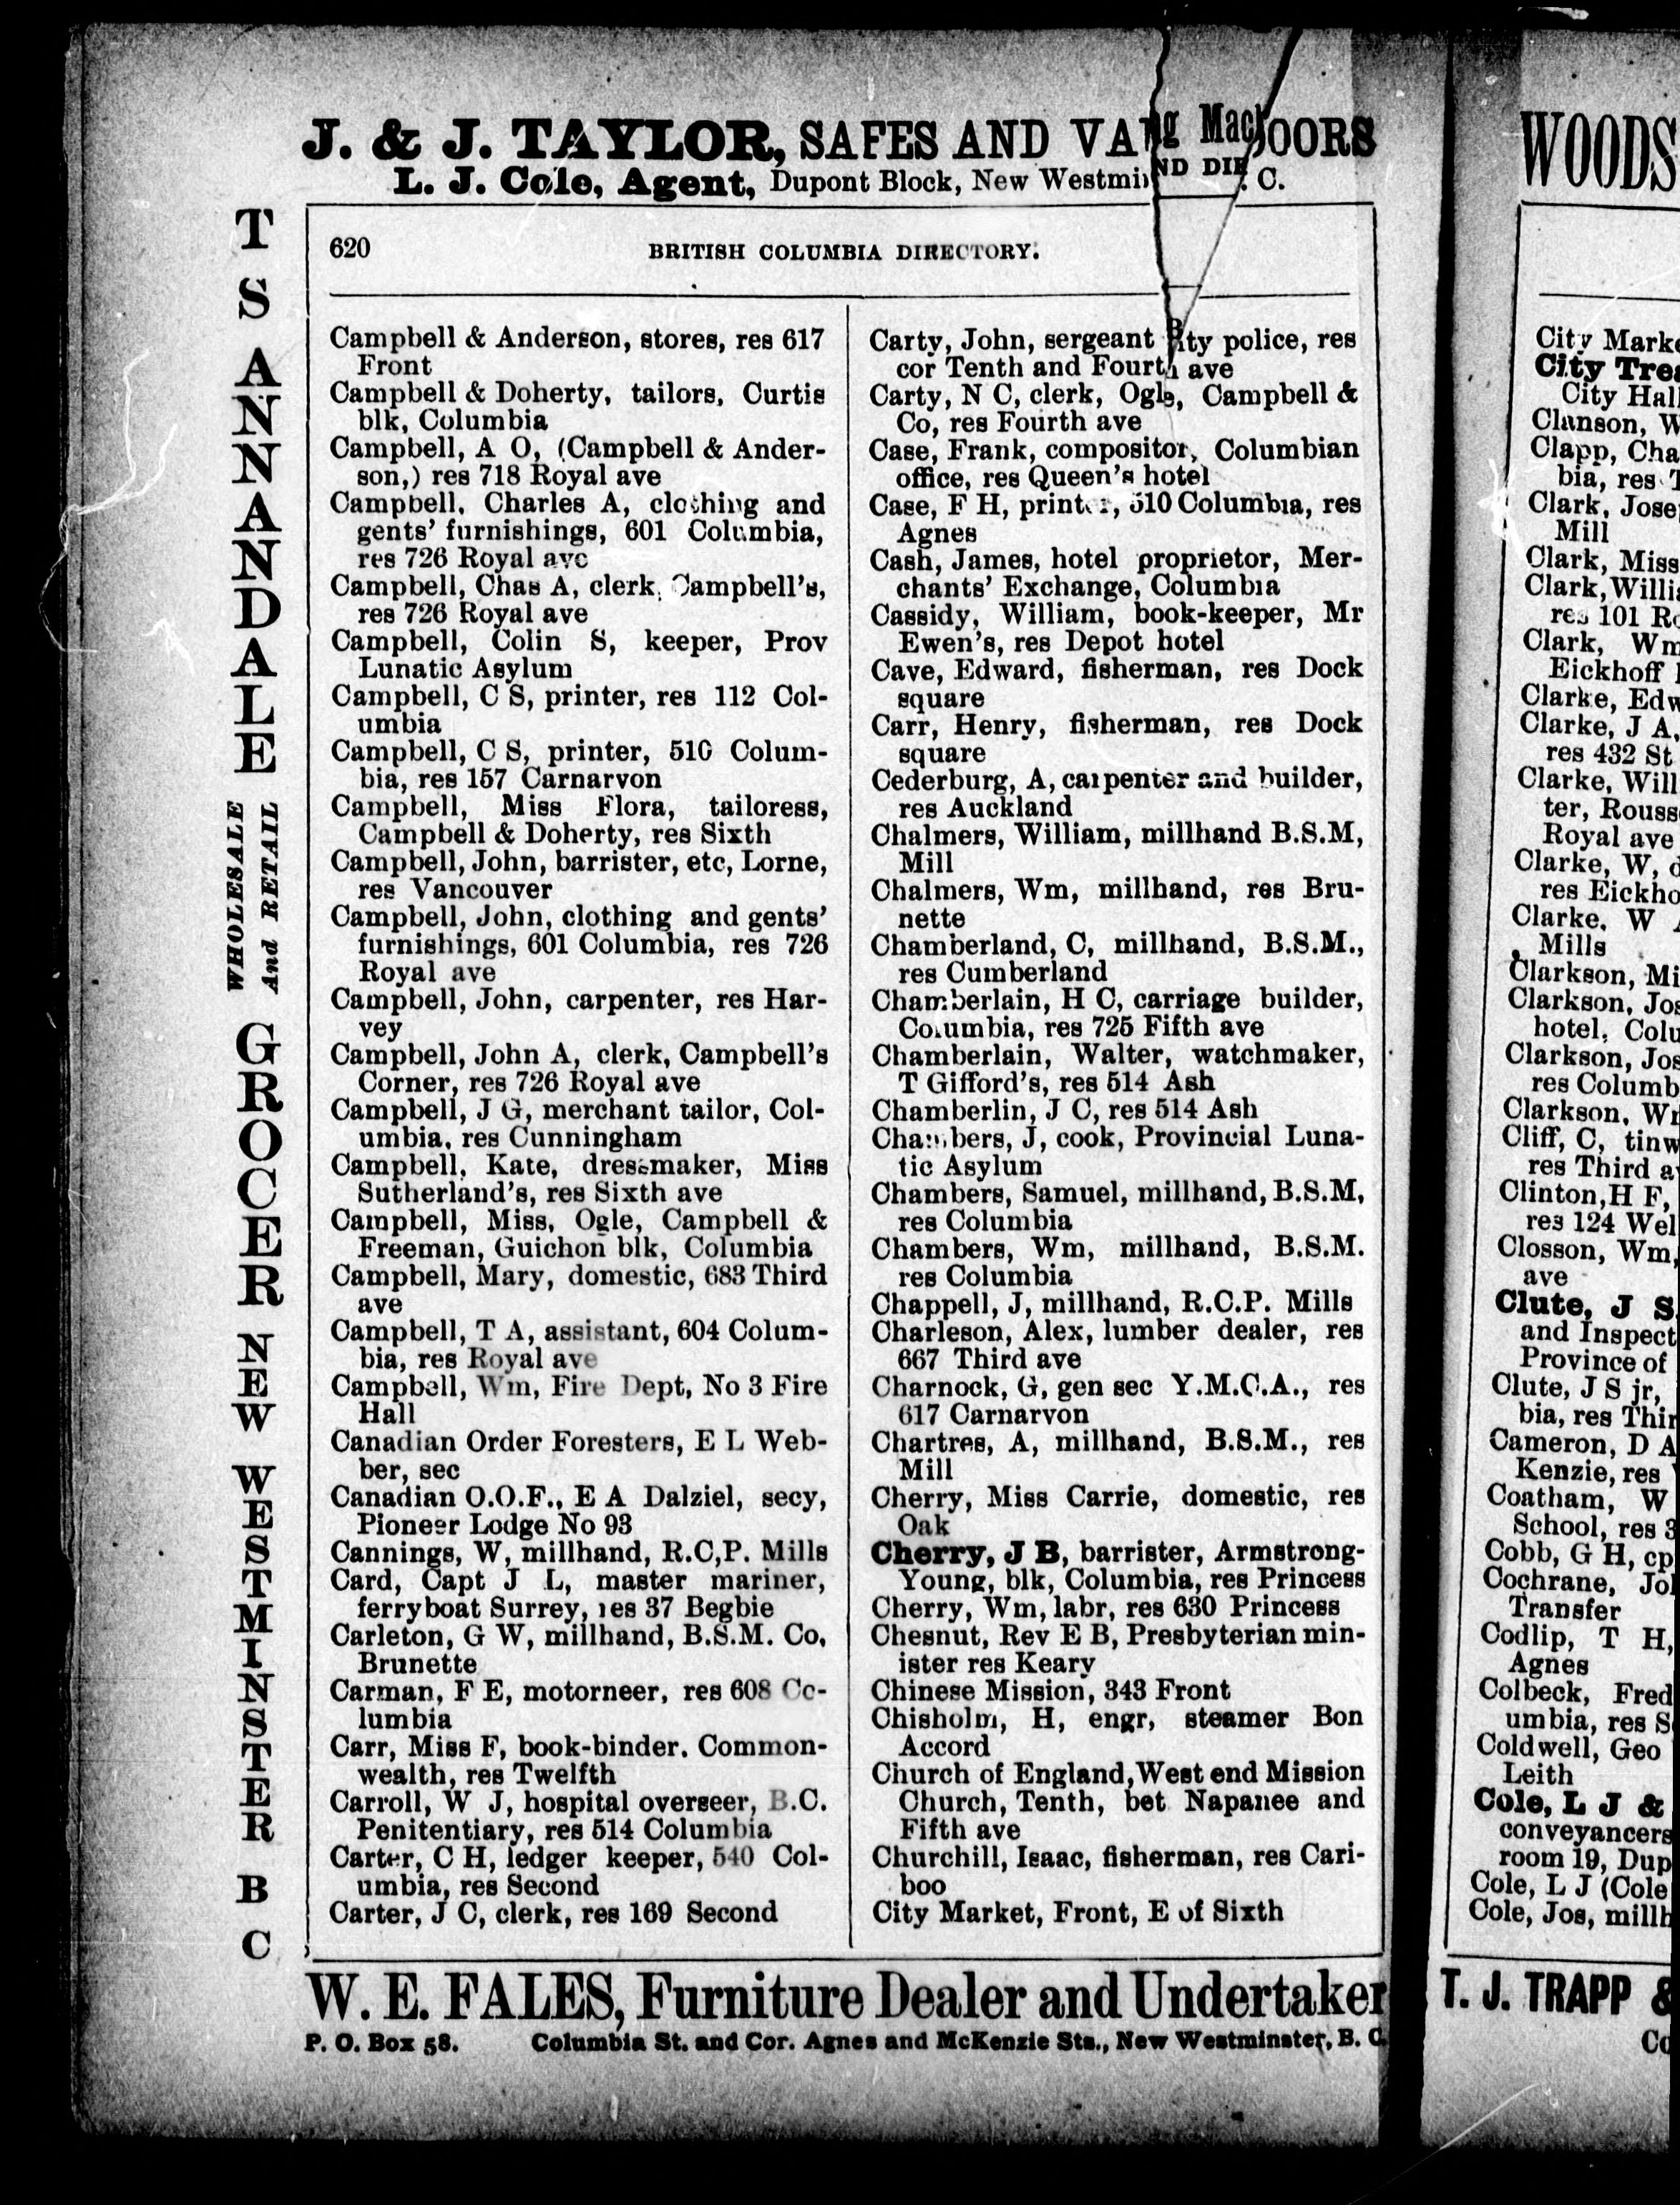 J. & J. TAYLOR, SAFES AND DOORS
L. J. Cole, Agent, Dupont Block, New C.
g Mac
ND DIE
T S ANNANDALE
WHOLESALE
And RETAIL
GROCER
NEW WESTMINSTER
B C
620
BRITISH COLUMBIA DIRECTORY.
Campbell & Anderson, stores, res 617
Front
Campbell & Doherty, tailors, Curtis
blk, Columbia
Campbell, A O, (Campbell & Ander-
son,) res 718 Royal ave
Campbell, Charles A, clothing and
gents' furnishings, 601 Columbia,
res 726 Royal ave
Campbell, Chas A, clerk, Campbell's,
res 726 Royal ave
Campbell, Colin S, keeper, Prov
Lunatic Asylum
Campbell, C S, printer, res 112 Col-
umbia
Campbell, C S, printer, 510 Colum-
bia, res 157 Carnarvon
Campbell, Miss Flora, tailoress,
Campbell & Doherty, res Sixth
Campbell, John, barrister, etc, Lorne,
res Vancouver
Campbell, John, clothing and gents'
furnishings, 601 Columbia, res 726
Royal ave
Campbell, John, carpenter, res Har-
vey
Campbell, John A, clerk, Campbell's
Corner, res 726 Royal ave
Campbell, J G, merchant tailor, Col-
umbia, res Cunningham
Campbell, Kate, dressmaker, Miss
Sutherland's, res Sixth ave
Campbell, Miss, Ogle, Campbell &
Freeman, Guichon blk, Columbia
Campbell, Mary, domestic, 683 Third
ave
Campbell, T A, assistant, 604 Colum-
bia, res Royal ave
Campbell, Wm, Fire Dept, No 3 Fire
Hall
Canadian Order Foresters, E L Web-
ber, sec
Canadian O.O.F., E A Dalziel, secy,
Pioneer Lodge No 93
Cannings, W, millhand, R.C,P. Mills
Card, Capt J L, master mariner,
ferryboat Surrey, res 37 Begbie
Carleton, G W, millhand, B.S.M. Co,
Brunette
Carman, F E, motorneer, res 608 Co-
lumbia
Carr, Miss F, book-binder. Common-
wealth, res Twelfth
Carroll, W J, hospital overseer, B.C.
Penitentiary, res 514 Columbia
Carter, C H, ledger keeper, 540 Col-
umbia, res Second
Carter, J C, clerk, res 169 Second
Carty, John, sergeant city police, res
cor Tenth and Fourth ave
Carty, N C, clerk, Ogle, Campbell &
Co, res Fourth ave
Case, Frank, compositor, Columbian
office, res Queen's hotel
Case, F H, printer, 510 Columbia, res
Agnes
Cash, James, hotel proprietor, Mer-
chants' Exchange, Columbia
Cassidy, William, book-keeper, Mr
Ewen's, res Depot hotel
Cave, Edward, fisherman, res Dock
square
Carr, Henry, fisherman, res Dock
square
Cederburg, A, carpenter and builder,
res Auckland
Chalmers, William, millhand B.S.M,
Mill
Chalmers, Wm, millhand, res Bru-
nette
Chamberland, C, millhand, B.S.M.,
res Cumberland
Chamberlain, H C, carriage builder,
Columbia, res 725 Fifth ave
Chamberlain, Walter, watchmaker,
T Gifford's, res 514 Ash
Chamberlin, J C, res 514 Ash
Chambers, J, cook, Provincial Luna-
tic Asylum
Chambers, Samuel, millhand, B.S.M,
res Columbia
Chambers, Wm, millhand, B.S.M.
res Columbia
Chappell, J, millhand, R.C.P. Mills
Charleson, Alex, lumber dealer, res
667 Third ave
Charnock, G, gen sec Y.M.C.A., res
617 Carnarvon
Chartres, A, millhand, B.S.M., res
Mill
Cherry, Miss Carrie, domestic, res
Oak
Cherry, J B, barrister, Armstrong-
Young, blk, Columbia, res Princess
Cherry, Wm, labr, res 630 Princess
Chesnut, Rev E B, Presbyterian min-
ister res Keary
Chinese Mission, 343 Front
Chisholm, H, engr, steamer Bon
Accord
Church of England, West end Mission
Church, Tenth, bet Napanee and
Fifth ave
Churchill, Isaac, fisherman, res Cari-
boo
City Market, Front, E of Sixth
W. E. FALES, Furniture Dealer and Undertaker
P. O. Box 58. Columbia St. and Cor. Agnes and McKenzie Sts., New Westminster, B. C.
WOODS
City Marke
City Trea
City Hall
Clanson, W
Clapp, Cha
bia, res
Clark, Jose
Mill
Clark, Miss
Clark, Willi
res 101 Ro
Clark, Wm
Eickhoff
Clarke, Edw
Clarke, J A,
res 432 St
Clarke, Will
ter, Rouss
Royal ave
Clarke, W,
res Eickho
Clarke, W
Mills
Clarkson, Mi
Clarkson, Jos
hotel, Colu
Clarkson, Jos
res Columb
Clarkson, Wm
Cliff, C, tinw
res Third a
Clinton, H F,
res 124 Wel
Closson, Wm,
ave
Clute, J S
and Inspect
Province of
Clute, J S jr,
bia, res Thir
Cameron, D A
Kenzie, res
Coatham, W
School, res 3
Cobb, G H, cp
Cochrane, Jo
Transfer
Codlip, T H,
Agnes
Colbeck, Fred
umbia, res S
Coldwell, Geo
Leith
Cole, L J &
conveyancers
room 19, Dup
Cole, L J (Cole
Cole, Jos, millh
T. J. TRAPP &
Co